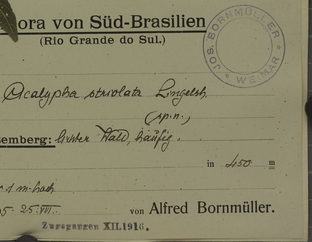 ora von Süd-Brasilien
(Rio Grande do Sul.)
JOS. BORNMÜLLER
* WEIMAR *
Acalypha striolata Lingelsh.
(sp. n.)
zemberg: lichter Wald, häufig.
in 450 m
1 m hoch
5. 25. VII.
von Alfred Bornmüller.
Zugegangen XII.1916.